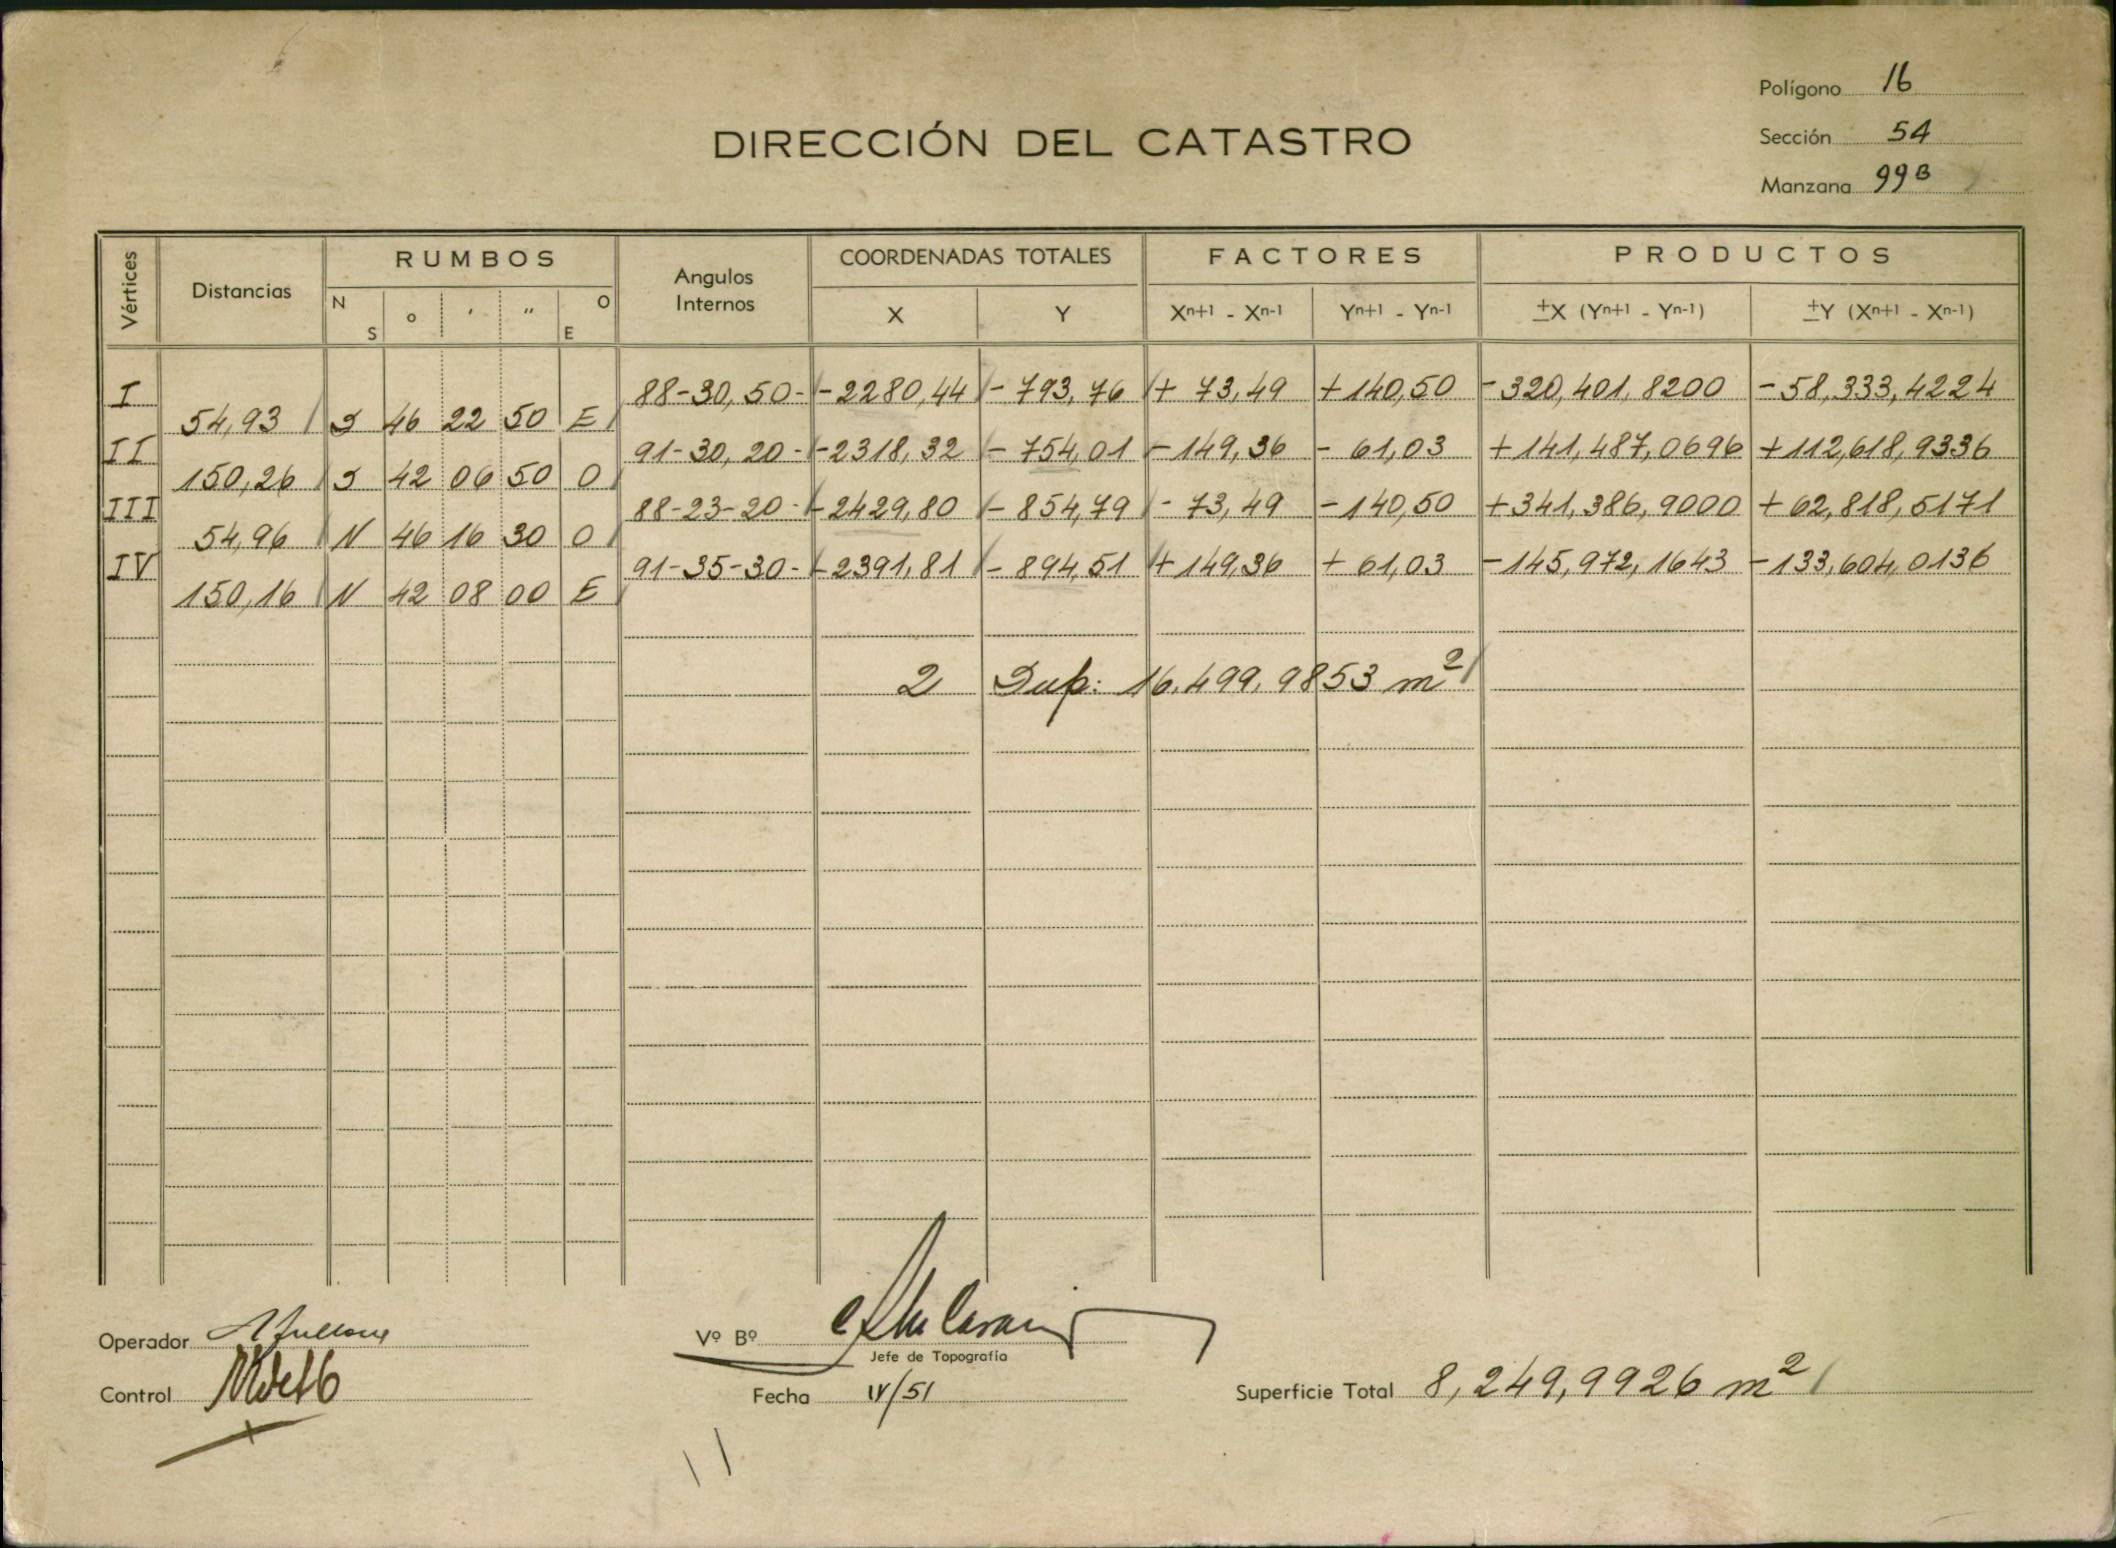 Polígono 16
DIRECCIÓN DEL CATASTRO
Sección 54
Manzana 99 B
Vértices Distancias RUMBOS Angulos Internos COORDENADAS TOTALES FACTORES PRODUCTOS
N S o ' " O E X Y Xn+1 - Xn-1 Yn+1 - Yn-1 ±X (Yn+1 - Yn-1) ±Y (Xn+1 - Xn-1)
I 88-30,50- -2280,44 - 793,76 + 73,49 +140,50 -320,401,8200 -58,333,4224
54,93 S 46 22 50 E
II 91-30,20- -2318,32 - 754,01 -149,36 - 61,03 +141,487,0696 +112,618,9336
150,26 S 42 06 50 O
III 88-23-20- -2429,80 - 854,79 - 73,49 -140,50 +341,386,9000 +62,818,5171
54,96 N 46 16 30 O
IV 91-35-30- -2391,81 - 894,51 +149,36 + 61,03 -145,972,1643 -133,604,0136
150,16 N 42 08 00 E
2 Sup: 16.499,9853 m2
Operador
Vº Bº
Jefe de Topografía
Control
Fecha IV/51
Superficie Total 8,249,9926 m2